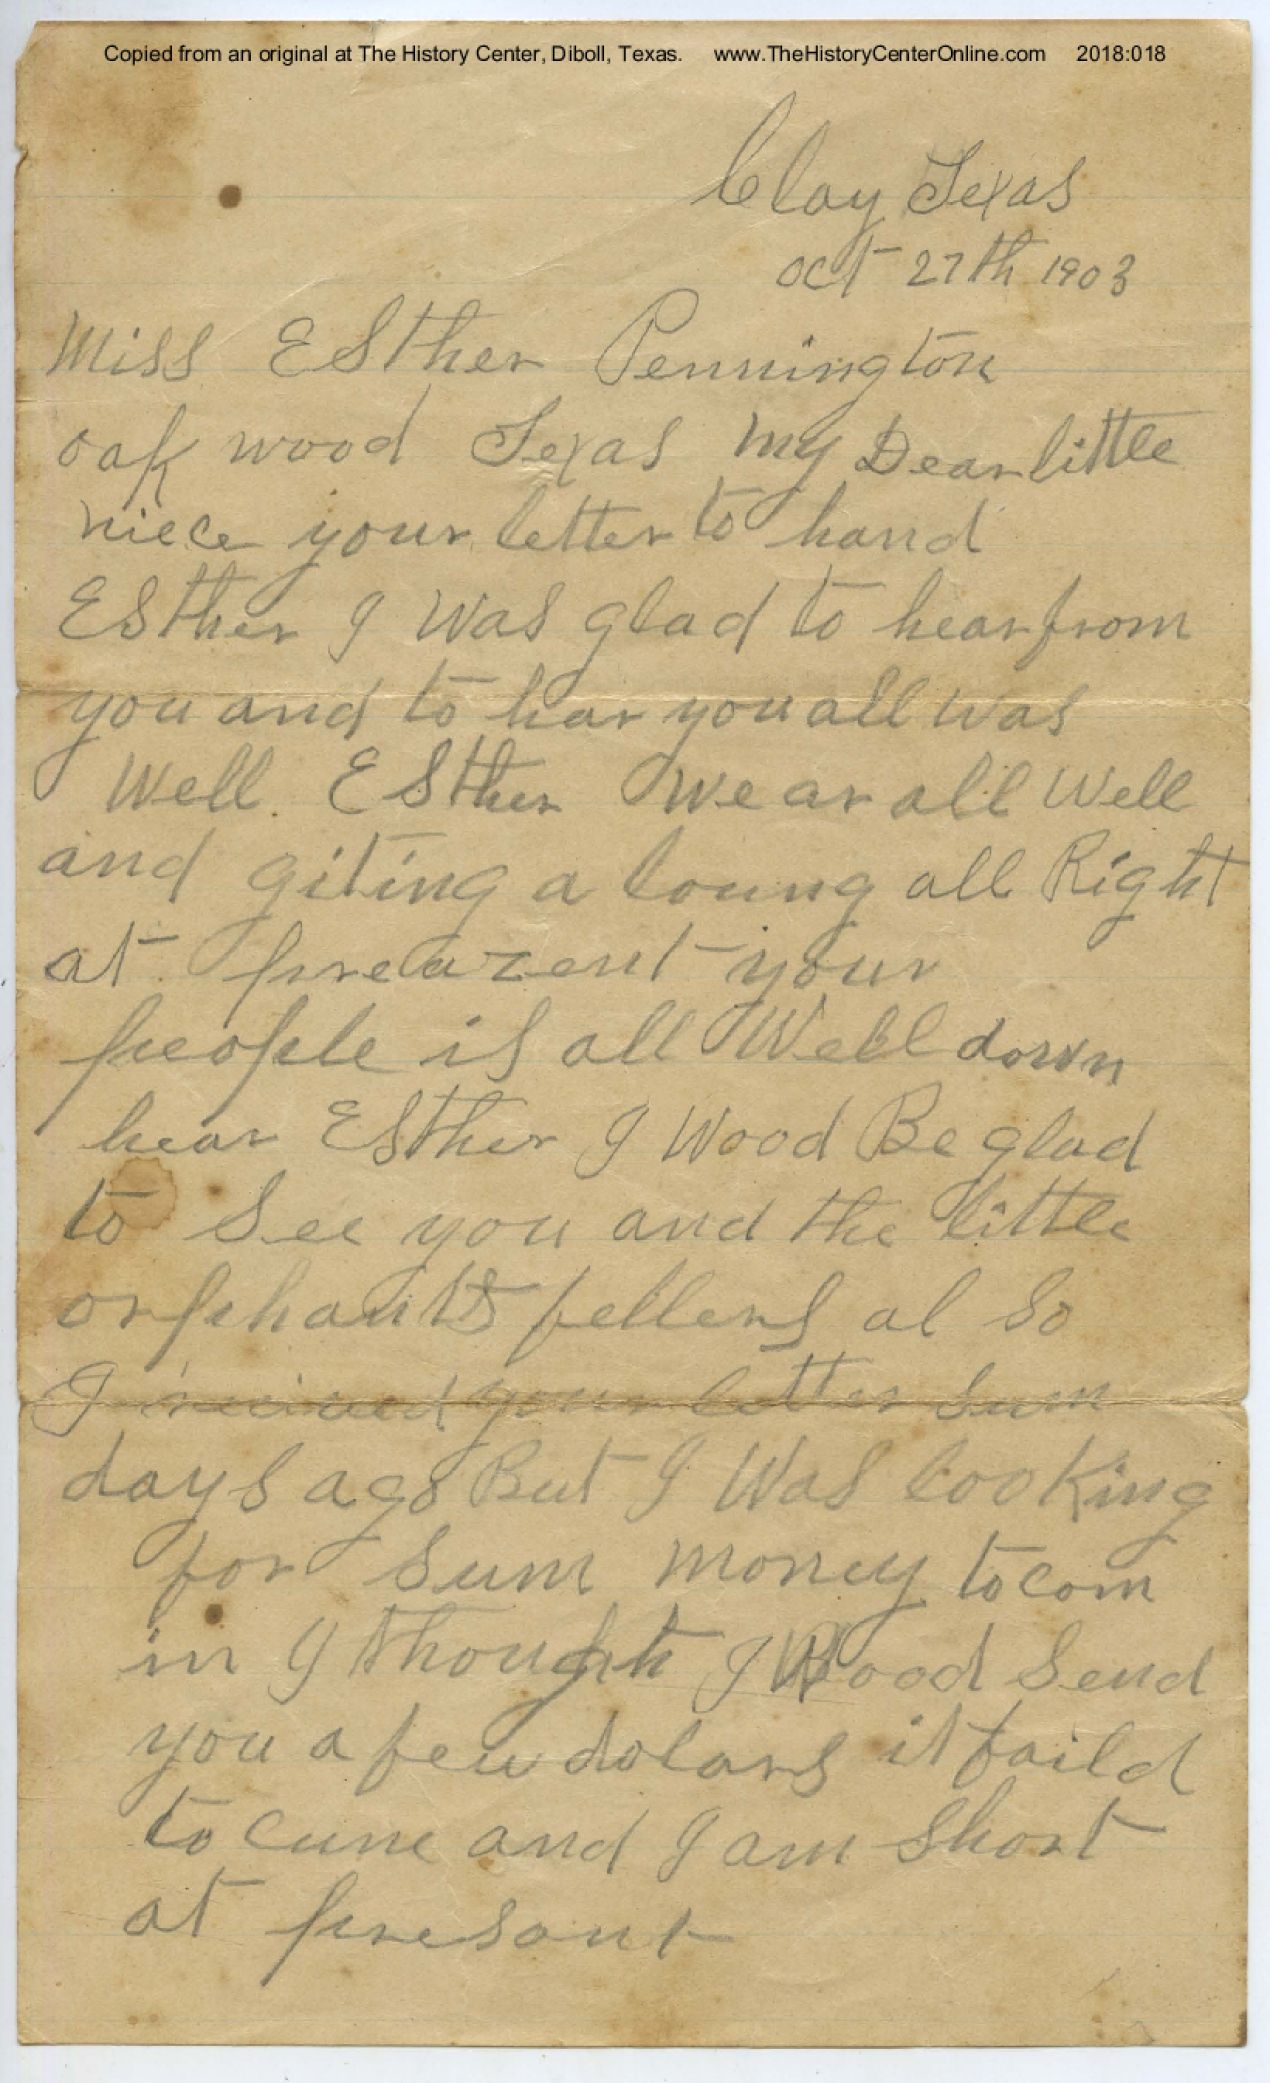 Copied from an original at The History Center, Diboll, Texas. www.TheHistoryCenterOnline.com 2018:018
Clay Texas
oct 27th 1903
Miss Esther Pennington
oak wood Texas my Dear little
niece your letter to hand
Esther I was glad to hear from
you and to har you all was
well. Esther we ar all well
and giting a loung all Right
at preazent your
people is all Well down
hear Esther I Wood Be glad
to See you and the little
orphants fellers al so
I reicived your letter Sum
days ago But I Was looking
for Sum money to com
in I thought I Wood Send
you a few dolars it faild
to cume and I am Short
at presant